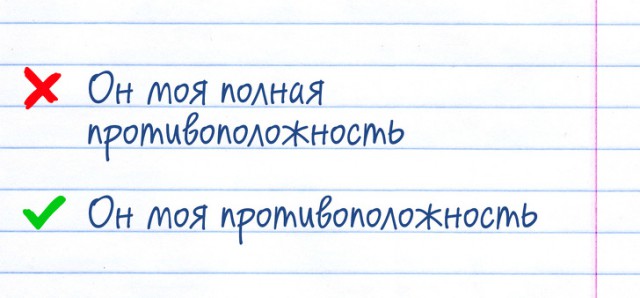 Он моя полная
противоположность
Он моя противоположность